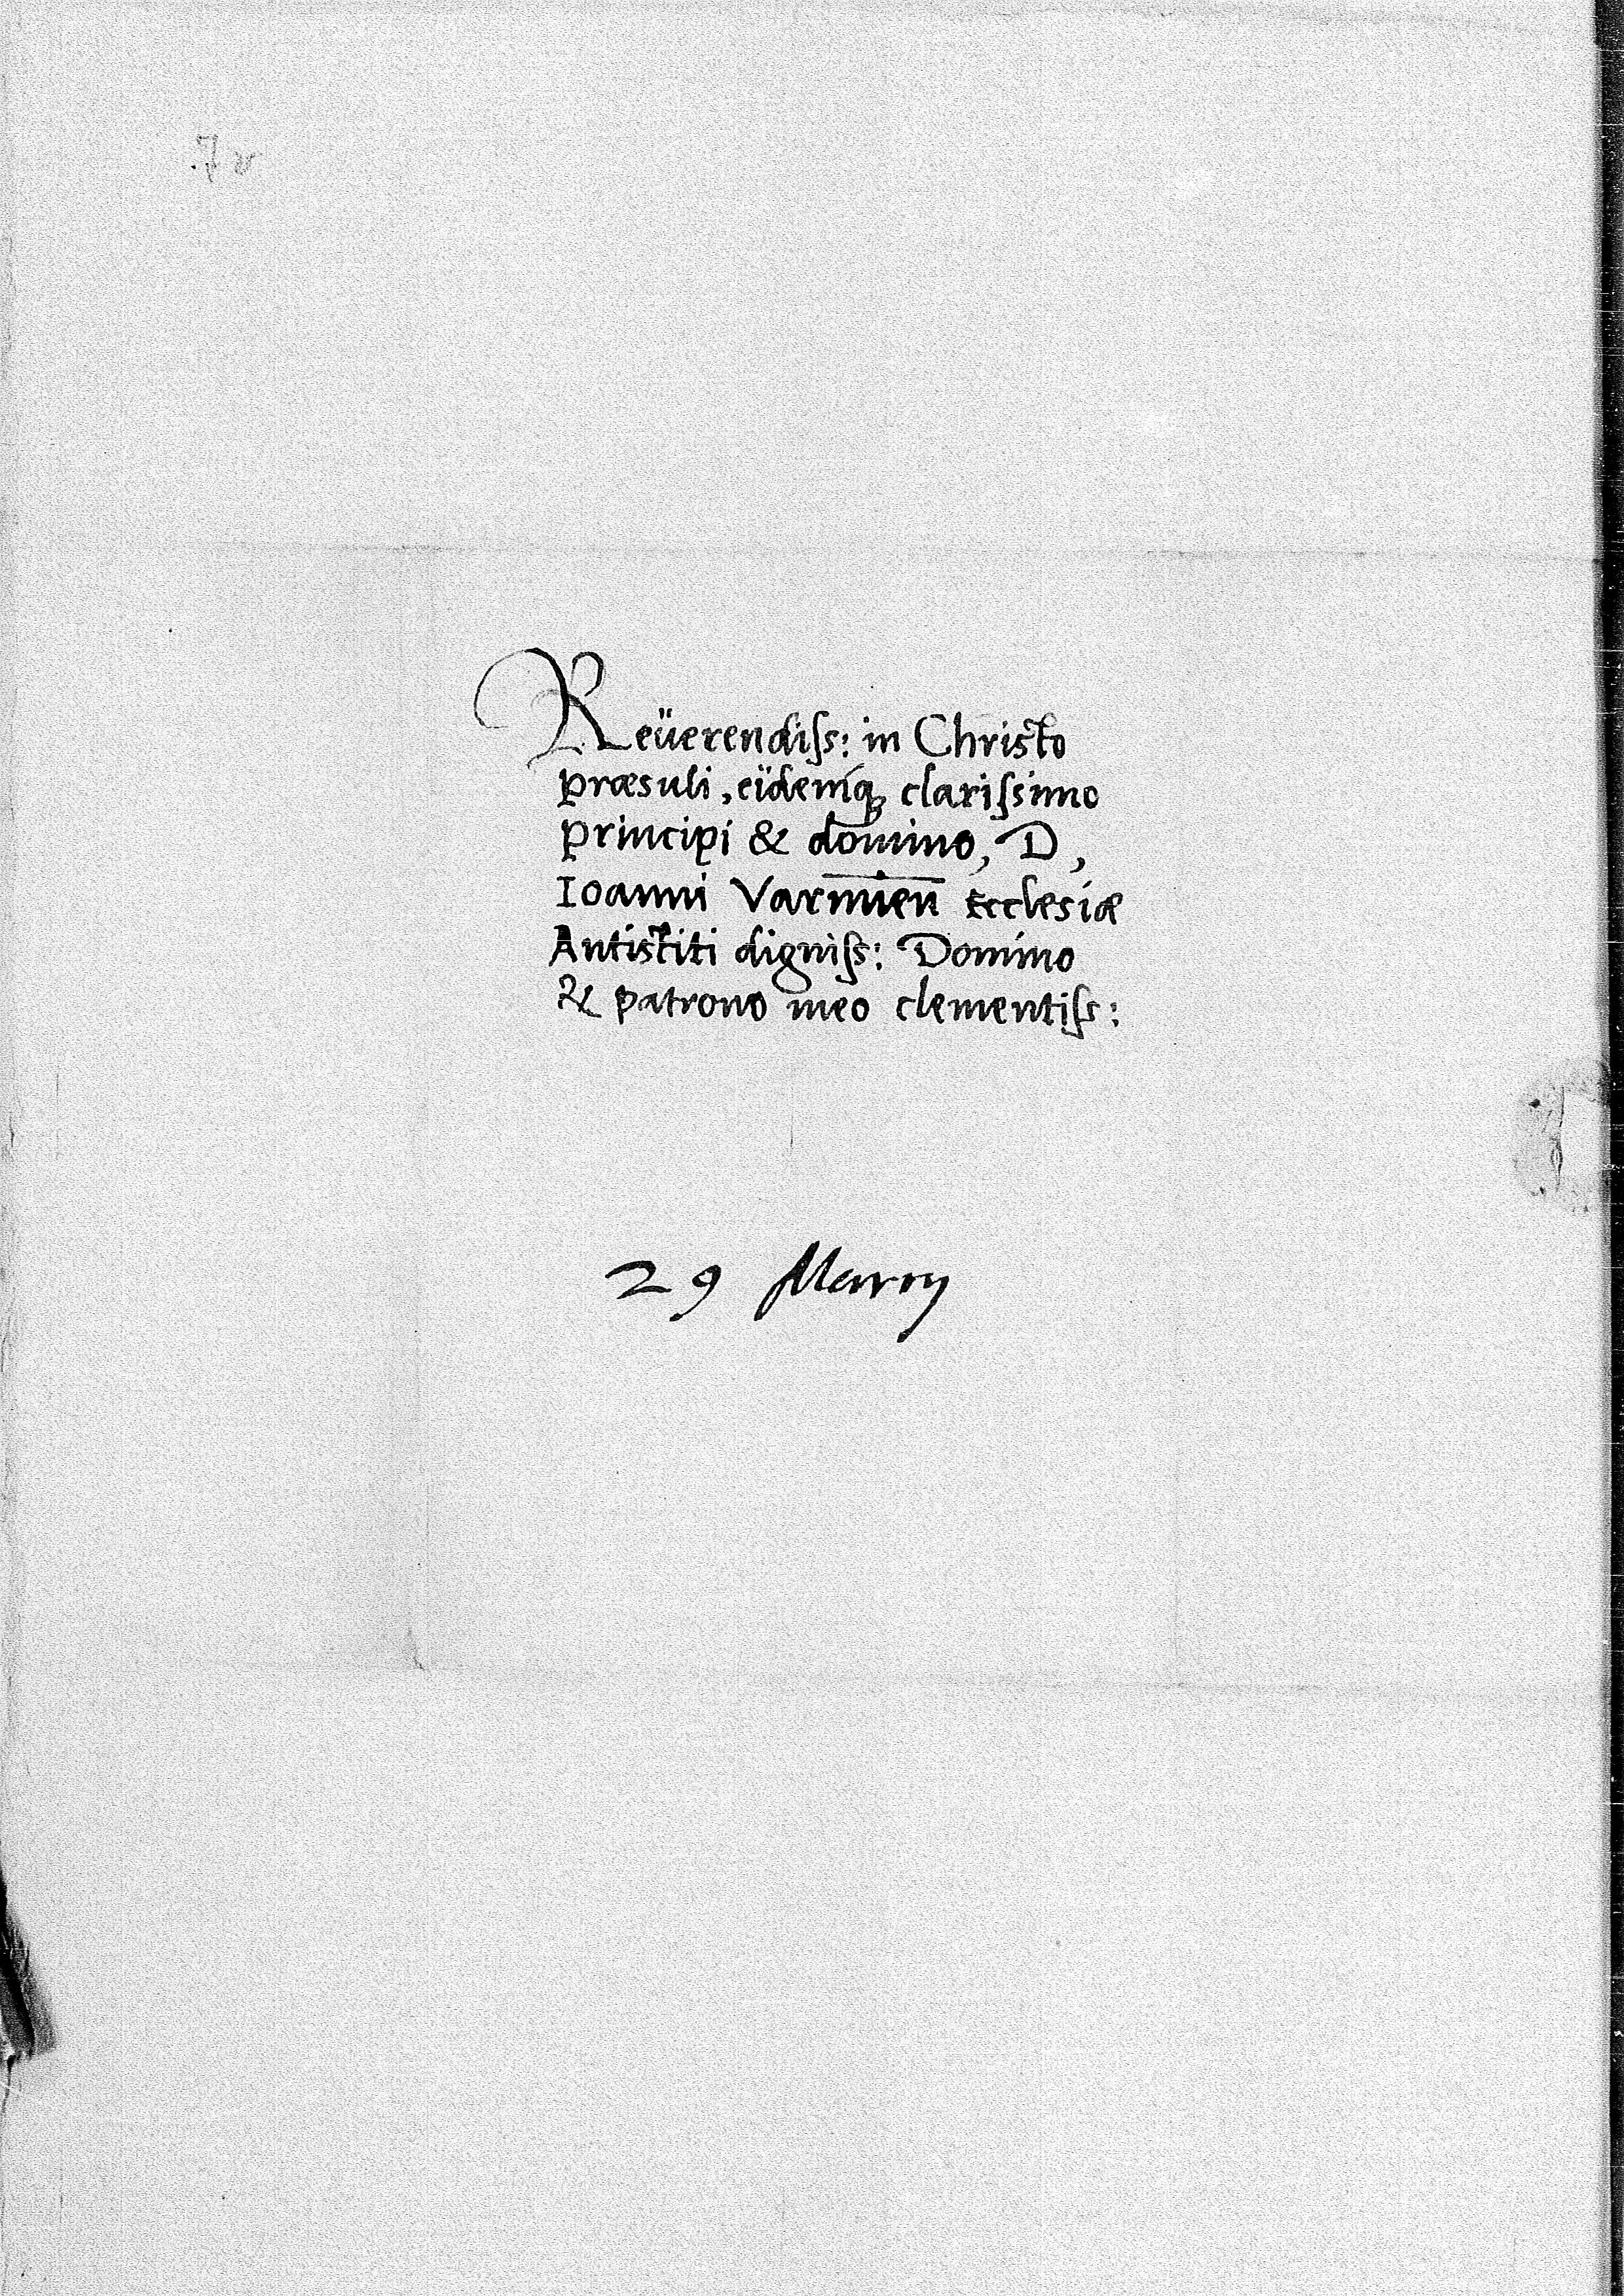 Reüerendiſs: in Christo
præsuli, eïdemq́ꝫ clariſsimo
principi & domino, D,
Ioanni Varmień Ecclesiæ
Antistiti digniſs: Domino
& patrono meo clementiſs:
29